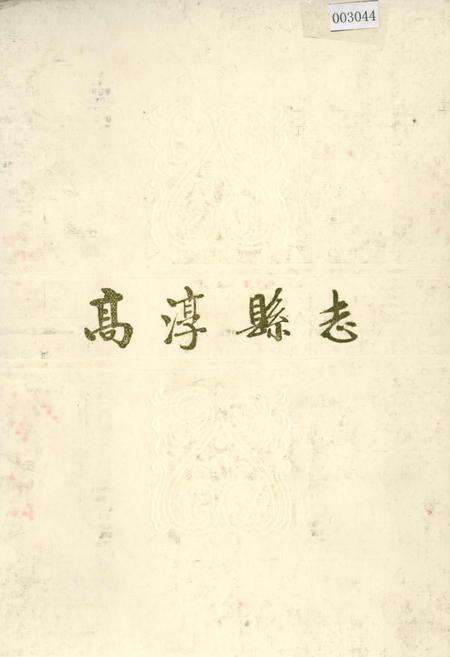 003044
高淳縣志